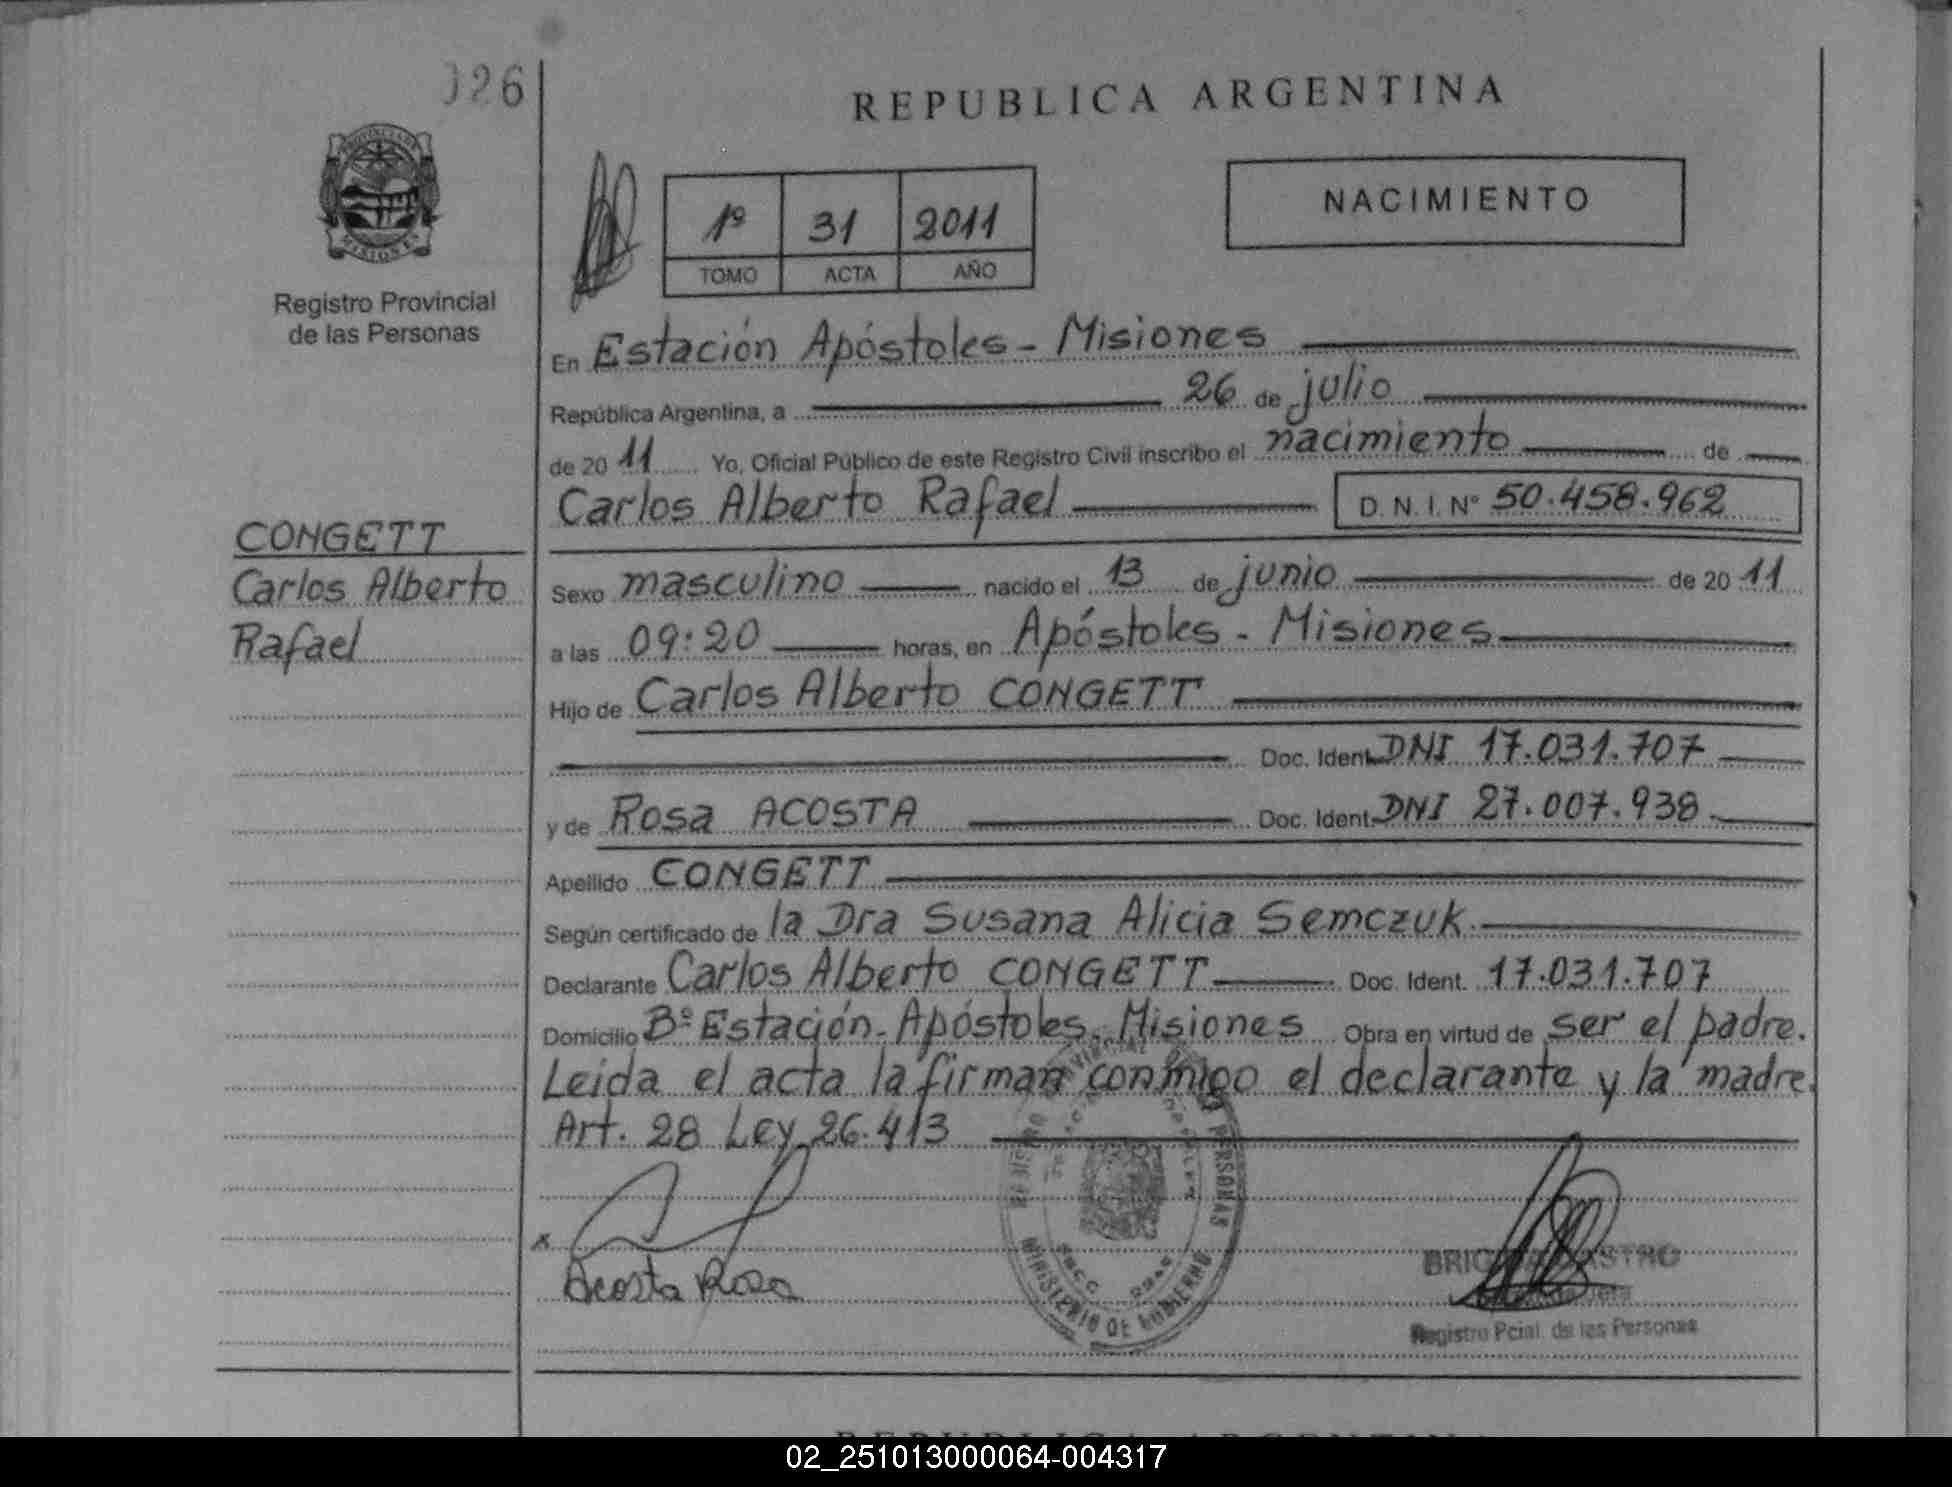 026
REPUBLICA ARGENTINA
PROVINCIA DE
MISIONES
Registro Provincial
de las Personas
1º 31 2011
TOMO ACTA AÑO
NACIMIENTO
En Estación Apóstoles - Misiones
República Argentina, a 26 de julio
de 2011 Yo, Oficial Público de este Registro Civil inscribo el nacimiento de
Carlos Alberto Rafael D. N. I. Nº 50.458.962
CONGETT
Carlos Alberto
Rafael
Sexo masculino nacido el 13 de junio de 2011
a las 09:20 horas, en Apóstoles - Misiones
Hijo de Carlos Alberto CONGETT
Doc. Ident. DNI 17.031.707
y de Rosa ACOSTA Doc. Ident. DNI 27.007.938
Apellido CONGETT
Según certificado de la Dra Susana Alicia Semczuk.
Declarante Carlos Alberto CONGETT Doc. Ident. 17.031.707
Domicilio Bº Estación - Apóstoles. Misiones Obra en virtud de ser el padre.
Leida el acta la firman conmigo el declarante y la madre.
Art. 28 Ley 26.413
PERSONAS
MINISTERIO DE GOBIERNO
x
Acosta Rosa
Registro Pcial. de las Personas
REPUBLICA ARGENTINA
02_251013000064-004317